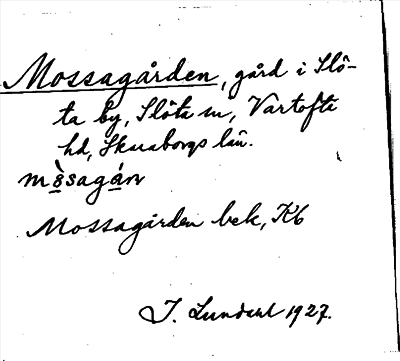 Mossagården, gård i Slö-
ta by, Slöta sn, Vartofta
hd, Skaraborgs län.
mòsagán
Mossagården bek, Kb
J. Lundahl 1927.